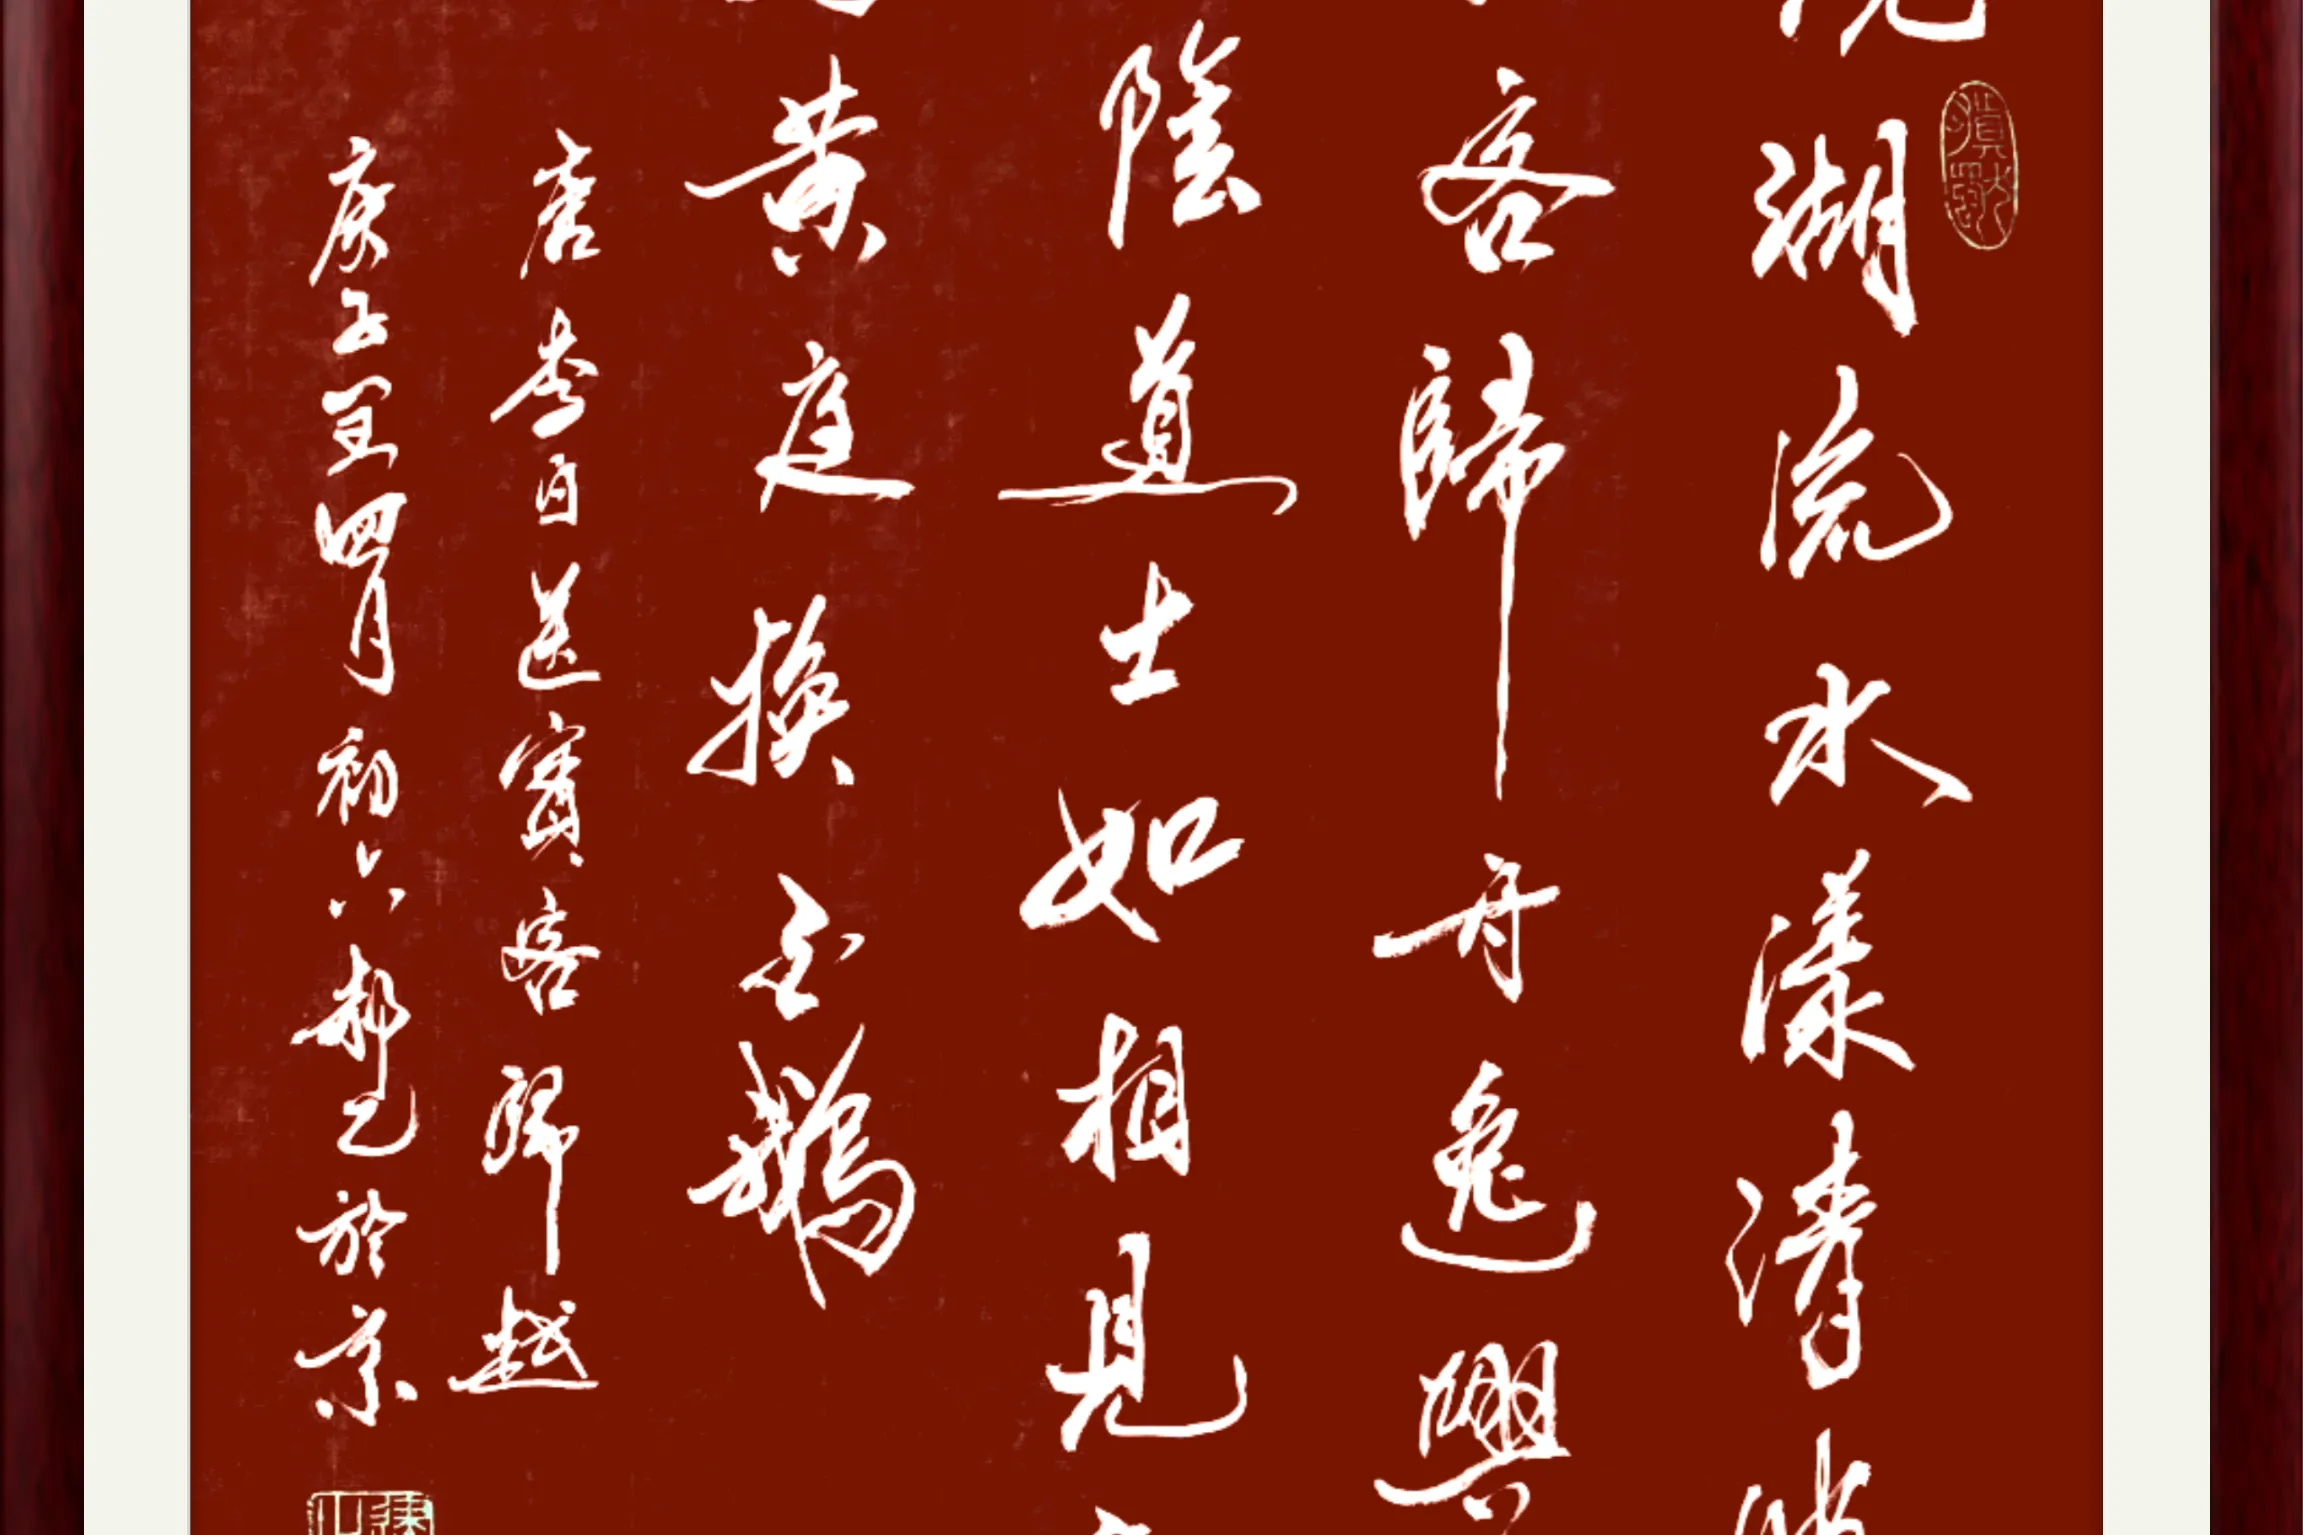 湖流水漾清
客歸舟逸興
陰道士如相見
黄庭換白鵝
唐李白送賓客歸越
庚子閏四月初六郝於京